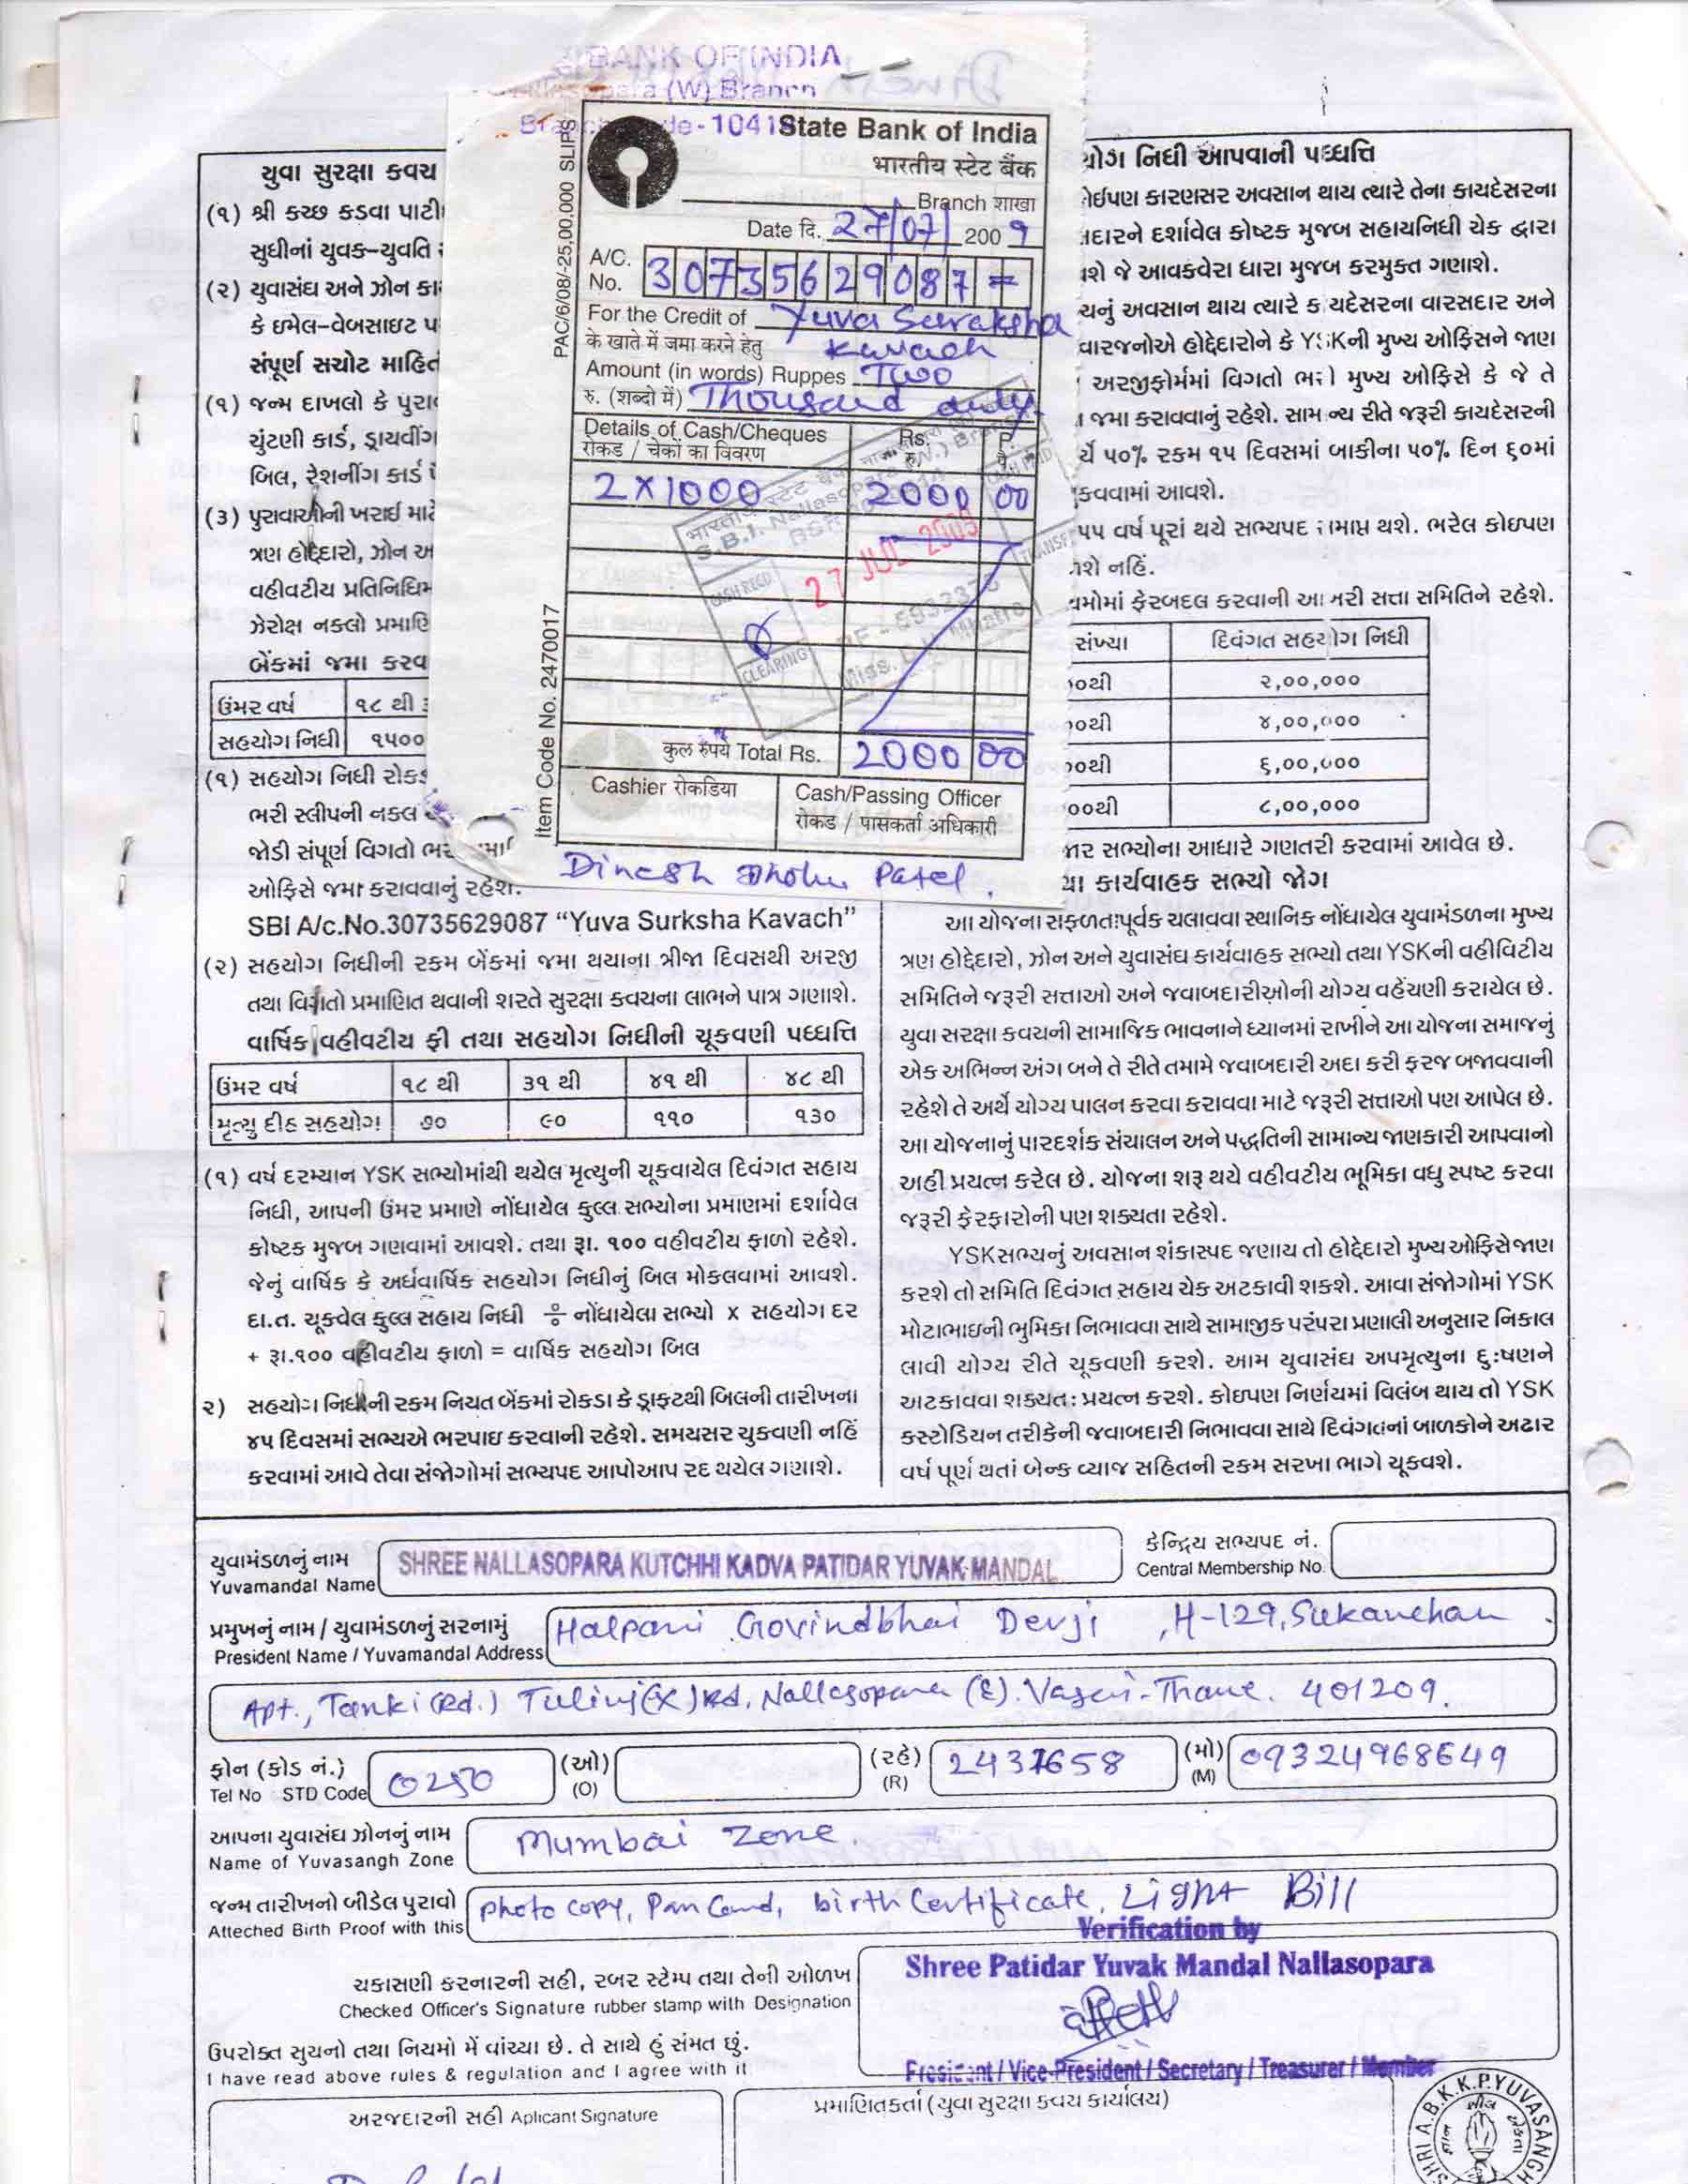 BANK OF INDIA
(W) Branch
State Bank of India
भारतीय स्टेट बैंक
Branch शाखा
Date दि. 27/07/ 2009
A/C. No. 30735629087 =
For the Credit of Yuva Suraksha
के खाते में जमा करने हेतु Kavach
Amount (in words) Ruppes Two
रु. (शब्दो में) Thousand only.
Details of Cash/Cheques Rs. P.
रोकड / चेकों का विवरण रु. पै.
2 X 1000 2000 00
27 JUL 2009
कुल रुपये Total Rs. 2000 00
Cashier रोकडिया
Cash/Passing Officer
रोकड / पासकर्ता अधिकारी
PAC/6/08/-25,00,000 SLIPS
Item Code No. 2470017
Dinesh Dholu Patel.
યુવા સુરક્ષા કવચ
(૧) શ્રી કચ્છ કડવા પાટી
સુધીનાં યુવક-યુવતિ
(૨) યુવાસંઘ અને ઝોન કા
કે ઇમેલ-વેબસાઇટ પ
સંપૂર્ણ સચોટ માહિત
(૧) જન્મ દાખલો કે પુરા
ચુંટણી કાર્ડ, ડ્રાયવીંગ
બિલ, રેશનીંગ કાર્ડ
(૩) પુરાવાઓની ખરાઈ માટે
ત્રણ હોદ્દેદારો, ઝોન અ
વહીવટીય પ્રતિનિધિ
ઝેરોક્ષ નકલો પ્રમાણિ
બેંકમાં જમા કરવ
ઉંમર વર્ષ ૧૮ થી
સહયોગ નિધી ૧૫૦૦
(૧) સહયોગ નિધી રોક
ભરી સ્લીપની નકલ
જોડી સંપૂર્ણ વિગતો ભરી
ઓફિસે જમા કરાવવાનું રહેશે.
SBI A/c.No.30735629087 “Yuva Surksha Kavach”
(૨) સહયોગ નિધીની રકમ બેંકમાં જમા થયાના ત્રીજા દિવસથી અરજી
તથા વિગતો પ્રમાણિત થવાની શરતે સુરક્ષા કવચના લાભને પાત્ર ગણાશે.
વાર્ષિક વહીવટીય ફી તથા સહયોગ નિધીની ચૂકવણી પધ્ધતિ
ઉંમર વર્ષ ૧૮ થી ૩૧ થી ૪૧ થી ૪૮ થી
મૃત્યુ દીઠ સહયોગ ૭૦ ૯૦ ૧૧૦ ૧૩૦
(૧) વર્ષ દરમ્યાન YSK સભ્યોમાંથી થયેલ મૃત્યુની ચૂકવાયેલ દિવંગત સહાય
નિધી, આપની ઉંમર પ્રમાણે નોંધાયેલ કુલ્લ સભ્યોના પ્રમાણમાં દર્શાવેલ
કોષ્ટક મુજબ ગણવામાં આવશે. તથા રૂા. ૧૦૦ વહીવટીય ફાળો રહેશે.
જેનું વાર્ષિક કે અર્ધવાર્ષિક સહયોગ નિધીનું બિલ મોકલવામાં આવશે.
દા.ત. ચૂકવેલ કુલ્લ સહાય નિધી ÷ નોંધાયેલા સભ્યો x સહયોગ દર
+ રૂા.૧૦૦ વહીવટીય ફાળો = વાર્ષિક સહયોગ બિલ
૨) સહયોગ નિધીની રકમ નિયત બેંકમાં રોકડા કે ડ્રાફટથી બિલની તારીખના
૪૫ દિવસમાં સભ્યએ ભરપાઇ કરવાની રહેશે. સમયસર ચુકવણી નહિં
કરવામાં આવે તેવા સંજોગોમાં સભ્યપદ આપોઆપ રદ થયેલ ગણાશે.
યોગ નિધી આપવાની પધ્ધતિ
કોઈપણ કારણસર અવસાન થાય ત્યારે તેના કાયદેસરના
દારને દર્શાવેલ કોષ્ટક મુજબ સહાયનિધી ચેક દ્વારા
શે જે આવકવેરા ધારા મુજબ કરમુક્ત ગણાશે.
યનું અવસાન થાય ત્યારે કાયદેસરના વારસદાર અને
વારજનોએ હોદ્દેદારોને કે YSKની મુખ્ય ઓફિસને જાણ
અરજીફોર્મમાં વિગતો ભરી મુખ્ય ઓફિસે કે જે તે
જમા કરાવવાનું રહેશે. સામાન્ય રીતે જરૂરી કાયદેસરની
ર્યે ૫૦% રકમ ૧૫ દિવસમાં બાકીના ૫૦% દિન ૬૦માં
કવવામાં આવશે.
૫૫ વર્ષ પૂરાં થયે સભ્યપદ સમાપ્ત થશે. ભરેલ કોઇપણ
શે નહિં.
યમોમાં ફેરબદલ કરવાની આખરી સત્તા સમિતિને રહેશે.
સંખ્યા દિવંગત સહયોગ નિધી
૦થી ૨,૦૦,૦૦૦
૦થી ૪,૦૦,૦૦૦
૦થી ૬,૦૦,૦૦૦
૦૦થી ૮,૦૦,૦૦૦
સભ્યોના આધારે ગણતરી કરવામાં આવેલ છે.
યા કાર્યવાહક સભ્યો જોગ
આ યોજના સફળતાપૂર્વક ચલાવવા સ્થાનિક નોંધાયેલ યુવામંડળના મુખ્ય
ત્રણ હોદ્દેદારો, ઝોન અને યુવાસંઘ કાર્યવાહક સભ્યો તથા YSKની વહીવિટીય
સમિતિને જરૂરી સત્તાઓ અને જવાબદારીઓની યોગ્ય વહેંચણી કરાયેલ છે.
યુવા સરક્ષા કવચની સામાજિક ભાવનાને ધ્યાનમાં રાખીને આ યોજના સમાજનું
એક અભિન્ન અંગ બને તે રીતે તમામે જવાબદારી અદા કરી ફરજ બજાવવાની
રહેશે તે અર્થે યોગ્ય પાલન કરવા કરાવવા માટે જરૂરી સત્તાઓ પણ આપેલ છે.
આ યોજનાનું પારદર્શક સંચાલન અને પદ્ધતિની સામાન્ય જાણકારી આપવાનો
અહીં પ્રયત્ન કરેલ છે. યોજના શરૂ થયે વહીવટીય ભૂમિકા વધુ સ્પષ્ટ કરવા
જરૂરી ફેરફારોની પણ શક્યતા રહેશે.
YSKસભ્યનું અવસાન શંકાસ્પદ જણાય તો હોદ્દેદારો મુખ્ય ઓફિસે જાણ
કરશે તો સમિતિ દિવંગત સહાય ચેક અટકાવી શકશે. આવા સંજોગોમાં YSK
મોટાભાઇની ભુમિકા નિભાવવા સાથે સામાજીક પરંપરા પ્રણાલી અનુસાર નિકાલ
લાવી યોગ્ય રીતે ચૂકવણી કરશે. આમ યુવાસંઘ અપમૃત્યુના દુઃષણને
અટકાવવા શક્યતઃ પ્રયત્ન કરશે. કોઇપણ નિર્ણયમાં વિલંબ થાય તો YSK
કસ્ટોડિયન તરીકેની જવાબદારી નિભાવવા સાથે દિવંગતનાં બાળકોને અઢાર
વર્ષ પૂર્ણ થતાં બેન્ક વ્યાજ સહિતની રકમ સરખા ભાગે ચૂકવશે.
યુવામંડળનું નામ SHREE NALLASOPARA KUTCHHI KADVA PATIDAR YUVAK-MANDAL
Yuvamandal Name
કેન્દ્રિય સભ્યપદ નં.
Central Membership No.
પ્રમુખનું નામ / યુવામંડળનું સરનામું Halpani Govindbhai Devji, H-129, Sukanchan
President Name / Yuvamandal Address
Apt., Tanki (Rd.) Tulinj (X) Rd, Nallasopara (E). Vasai-Thane. 401209.
ફોન (કોડ નં.) 0250 (ઓ) (રહે) 2437658 (મો) 09324968649
Tel No STD Code (O) (R) (M)
આપના યુવાસંઘ ઝોનનું નામ Mumbai Zone.
Name of Yuvasangh Zone
જન્મ તારીખનો બીડેલ પુરાવો photo copy, Pan Card, birth Certificate, Light Bill
Atteched Birth Proof with this
Verification by
Shree Patidar Yuvak Mandal Nallasopara
President / Vice-President / Secretary / Treasurer / Member
ચકાસણી કરનારની સહી, રબર સ્ટેમ્પ તથા તેની ઓળખ
Checked Officer's Signature rubber stamp with Designation
ઉપરોક્ત સુચનો તથા નિયમો મેં વાંચ્યા છે. તે સાથે હું સંમત છું.
I have read above rules & regulation and I agree with it
અરજદારની સહી Aplicant Signature
પ્રમાણિતકર્તા (યુવા સુરક્ષા કવચ કાર્યાલય)
SHRI A.B.K.K.P. YUVASANGH